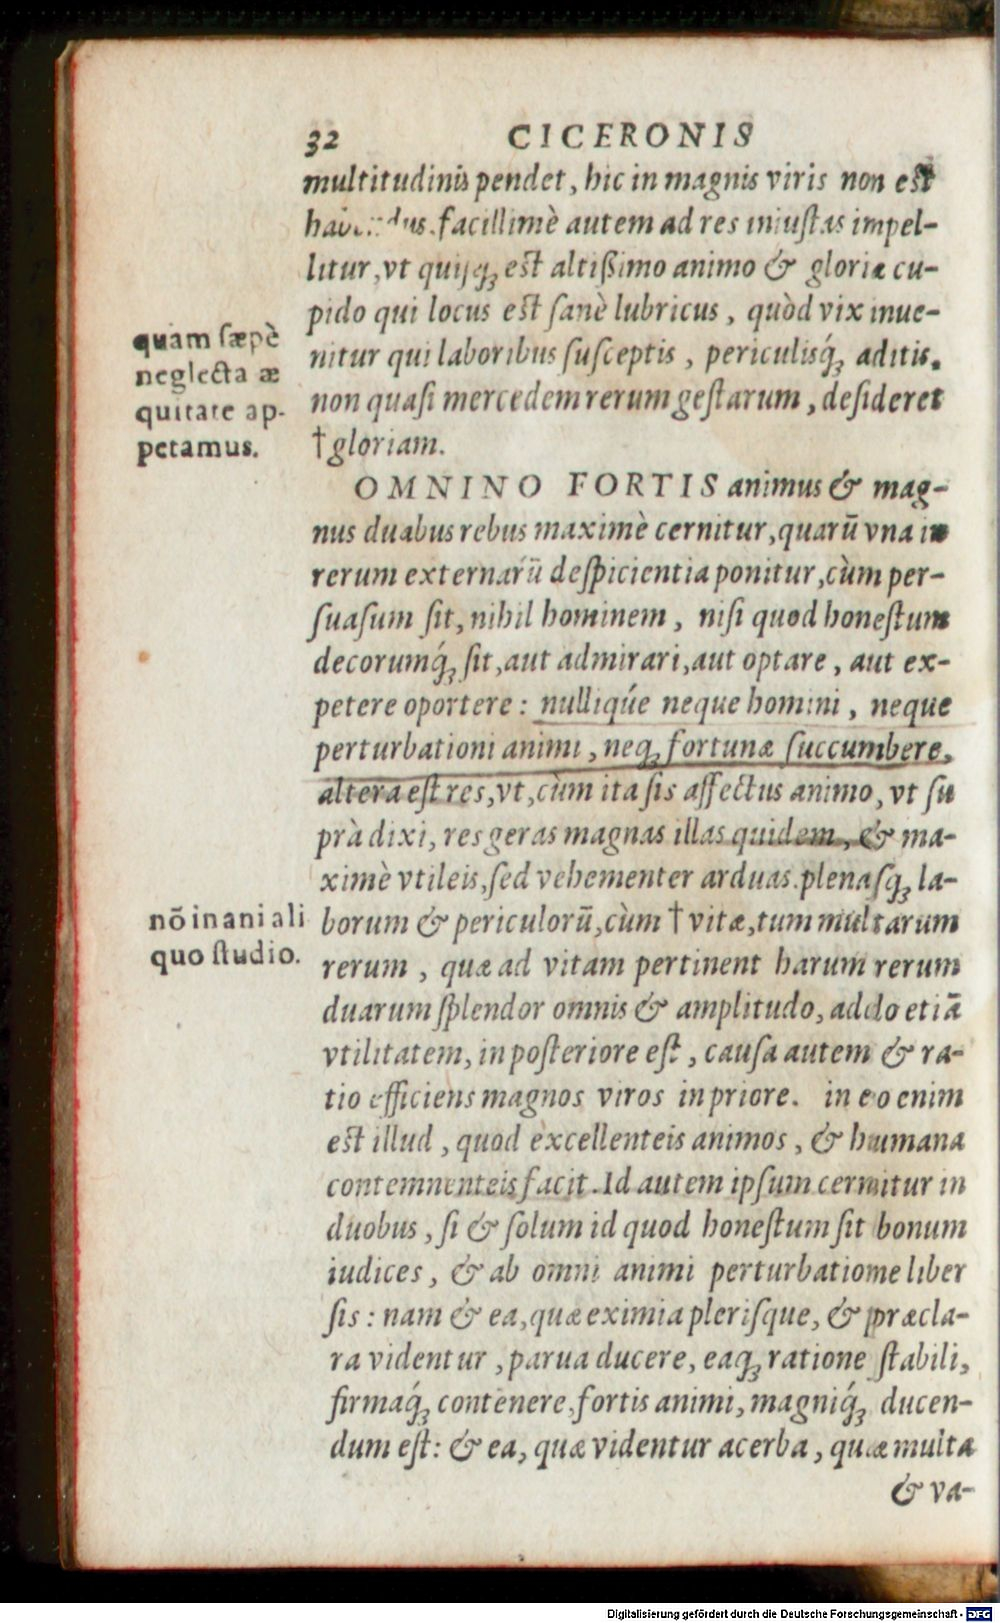 32 CICERONIS
multitudinis pendet, hic in magnis viris non est
facillimè autem ad res iniustas impel-
litur, vt quisq; est altißimo animo & gloriæ cu-
pido qui locus est sanè lubricus, quòd vix inue-
nitur qui laboribus susceptis, periculisq́; aditis.
non quasi mercedem rerum gestarum, desideret
†gloriam.
quam sæpè
neglecta æ
quitate ap-
petamus.
OMNINO FORTIS animus & mag-
nus duabus rebus maximè cernitur, quarū vna in
rerum externarū despicientia ponitur, cùm per-
suasum sit, nihil hominem, nisi quod honestum
decorumq́; sit, aut admirari, aut optare, aut ex-
petere oportere: nulliqúe neque homini, neque
perturbationi animi, neq; fortunæ succumbere.
altera est res, vt, cùm ita sis affectus animo, vt su
prà dixi, res geras magnas illas quidem, & ma-
ximè vtileis, sed vehementer arduas. plenasq; la-
borum & periculorū, cùm † vitæ, tum multarum
rerum, quæ ad vitam pertinent harum rerum
duarum splendor omnis & amplitudo, addo etiā
vtilitatem, in posteriore est, causa autem & ra-
tio efficiens magnos viros in priore. in eo enim
est illud, quod excellenteis animos, & humana
contemnenteis facit. Id autem ipsum cernitur in
duobus, si & solum id quod honestum sit bonum
iudices, & ab omni animi perturbatione liber
sis: nam & ea, quæ eximia plerisque, & præcla-
ra videntur, parua ducere, eaq; ratione stabili,
firmaq́; contēnere, fortis animi, magniq́; ducen-
dum est: & ea, quæ videntur acerba, quæ multa
& va-
nō inani ali
quo studio.
Digitalisierung gefördert durch die Deutsche Forschungsgemeinschaft - DFG